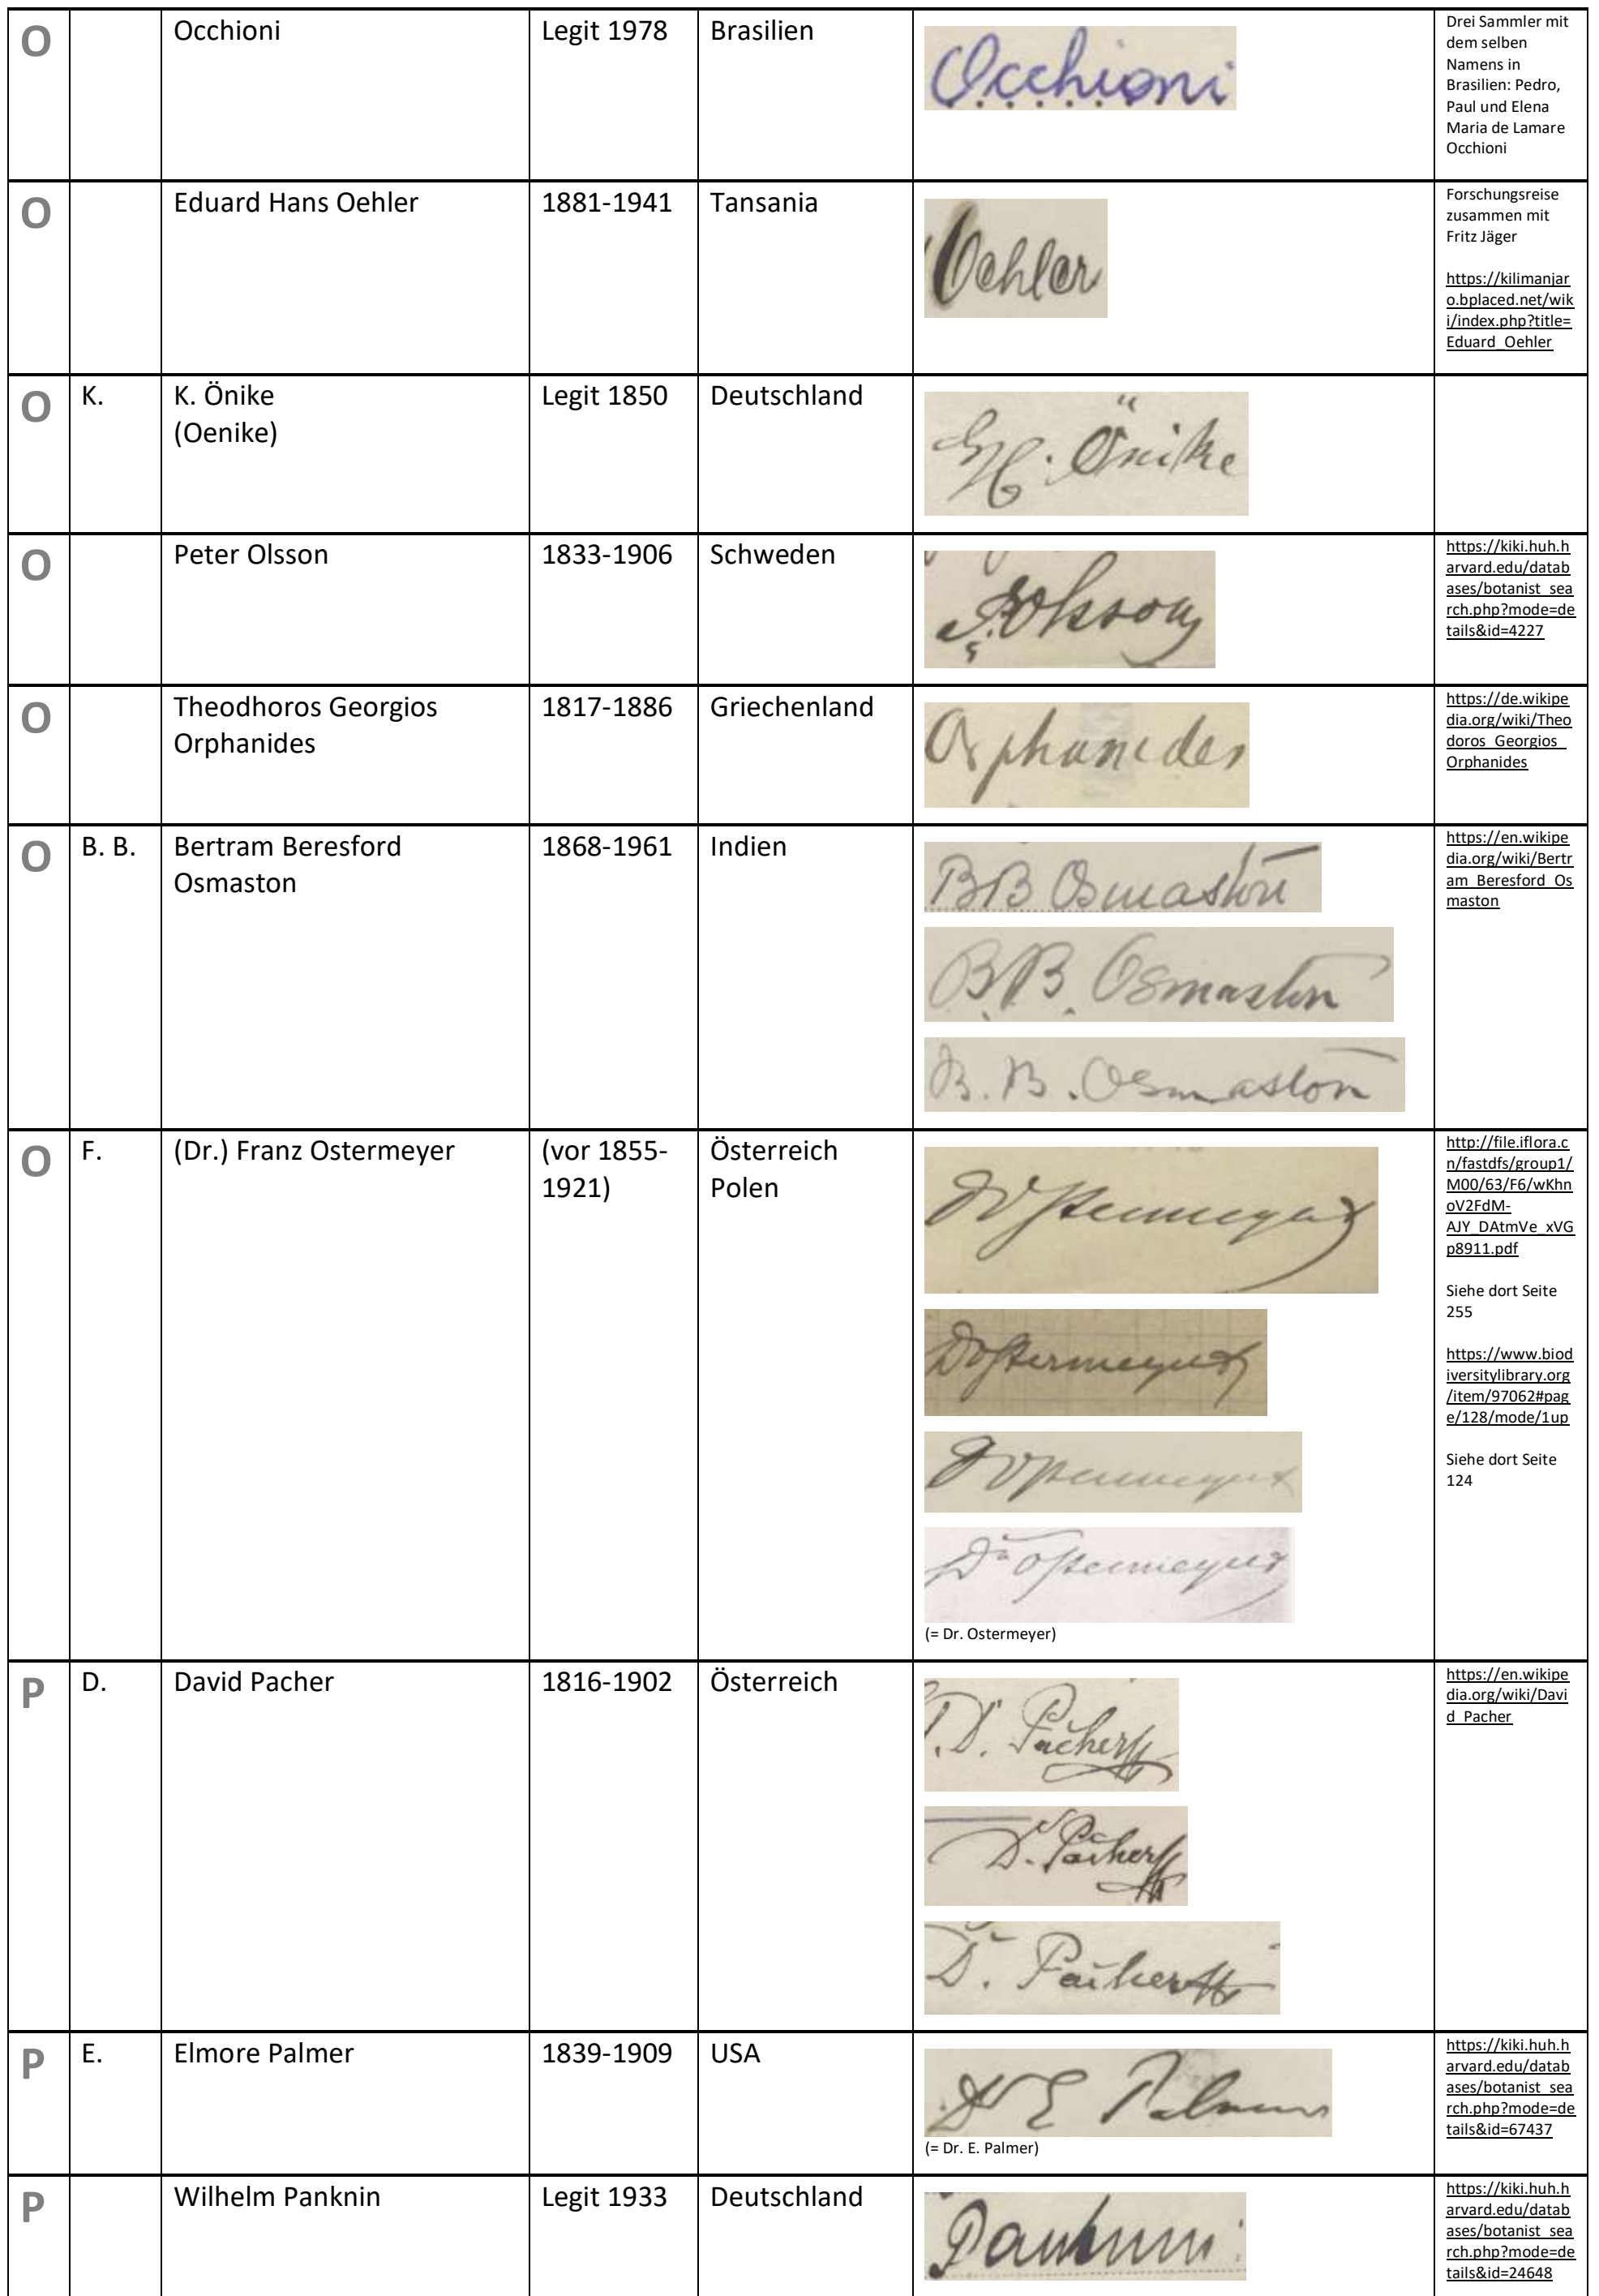 O Occhioni Legit 1978 Brasilien Occhioni
Drei Sammler mit
dem selben
Namens in
Brasilien: Pedro,
Paul und Elena
Maria de Lamare
Occhioni
O Eduard Hans Oehler 1881-1941 Tansania Oehler
Forschungsreise
zusammen mit
Fritz Jäger
https://kilimanjar
o.bplaced.net/wik
i/index.php?title=
Eduard_Oehler
O K. K. Önike Legit 1850 Deutschland Önike
(Oenike)
O Peter Olsson 1833-1906 Schweden Olsson
https://kiki.huh.h
arvard.edu/datab
ases/botanist_sea
rch.php?mode=de
tails&id=4227
O Theodhoros Georgios 1817-1886 Griechenland Orphanides
Orphanides
https://de.wikipe
dia.org/wiki/Theo
doros_Georgios_
Orphanides
O B. B. Bertram Beresford 1868-1961 Indien BB Osmaston
Osmaston
B.B. Osmaston
B. B. Osmaston
https://en.wikipe
dia.org/wiki/Bertr
am_Beresford_Os
maston
O F. (Dr.) Franz Ostermeyer (vor 1855- Österreich Dr Ostermeyer
1921) Polen
Dr Ostermeyer
Dr Ostermeyer
Dr Ostermeyer
(= Dr. Ostermeyer)
http://file.iflora.c
n/fastdfs/group1/
M00/63/F6/wKhn
oV2FdM-
AJY_DAtmVe_xVG
p8911.pdf
Siehe dort Seite
255
https://www.biod
iversitylibrary.org
/item/97062#pag
e/128/mode/1up
Siehe dort Seite
124
P D. David Pacher 1816-1902 Österreich D. Pacher
D. Pacher
D. Pacher
https://en.wikipe
dia.org/wiki/Davi
d_Pacher
P E. Elmore Palmer 1839-1909 USA Dr E Palmer
(= Dr. E. Palmer)
https://kiki.huh.h
arvard.edu/datab
ases/botanist_sea
rch.php?mode=de
tails&id=67437
P Wilhelm Panknin Legit 1933 Deutschland Panknin
https://kiki.huh.h
arvard.edu/datab
ases/botanist_sea
rch.php?mode=de
tails&id=24648